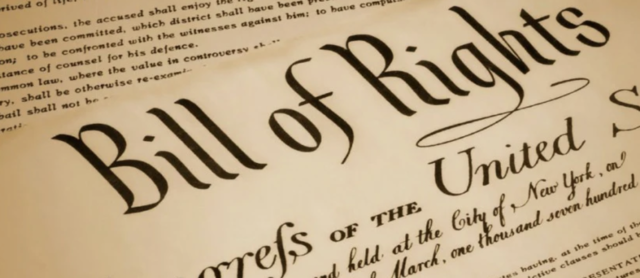 rived of life,
osecutions, the accused shall enjoy the
have been committed, which district shall have been
on; to be confronted with the witnesses against him; to have
stance of counsel for his defence.
mmon law, where the value in controversy
ry, shall be otherwise re-exami
bail shall not be
Bill of Rights
ngreſs OF THE United S
nd held at the City of New York, on
March, one thousand seven hundred
having, at the time of
clauses should